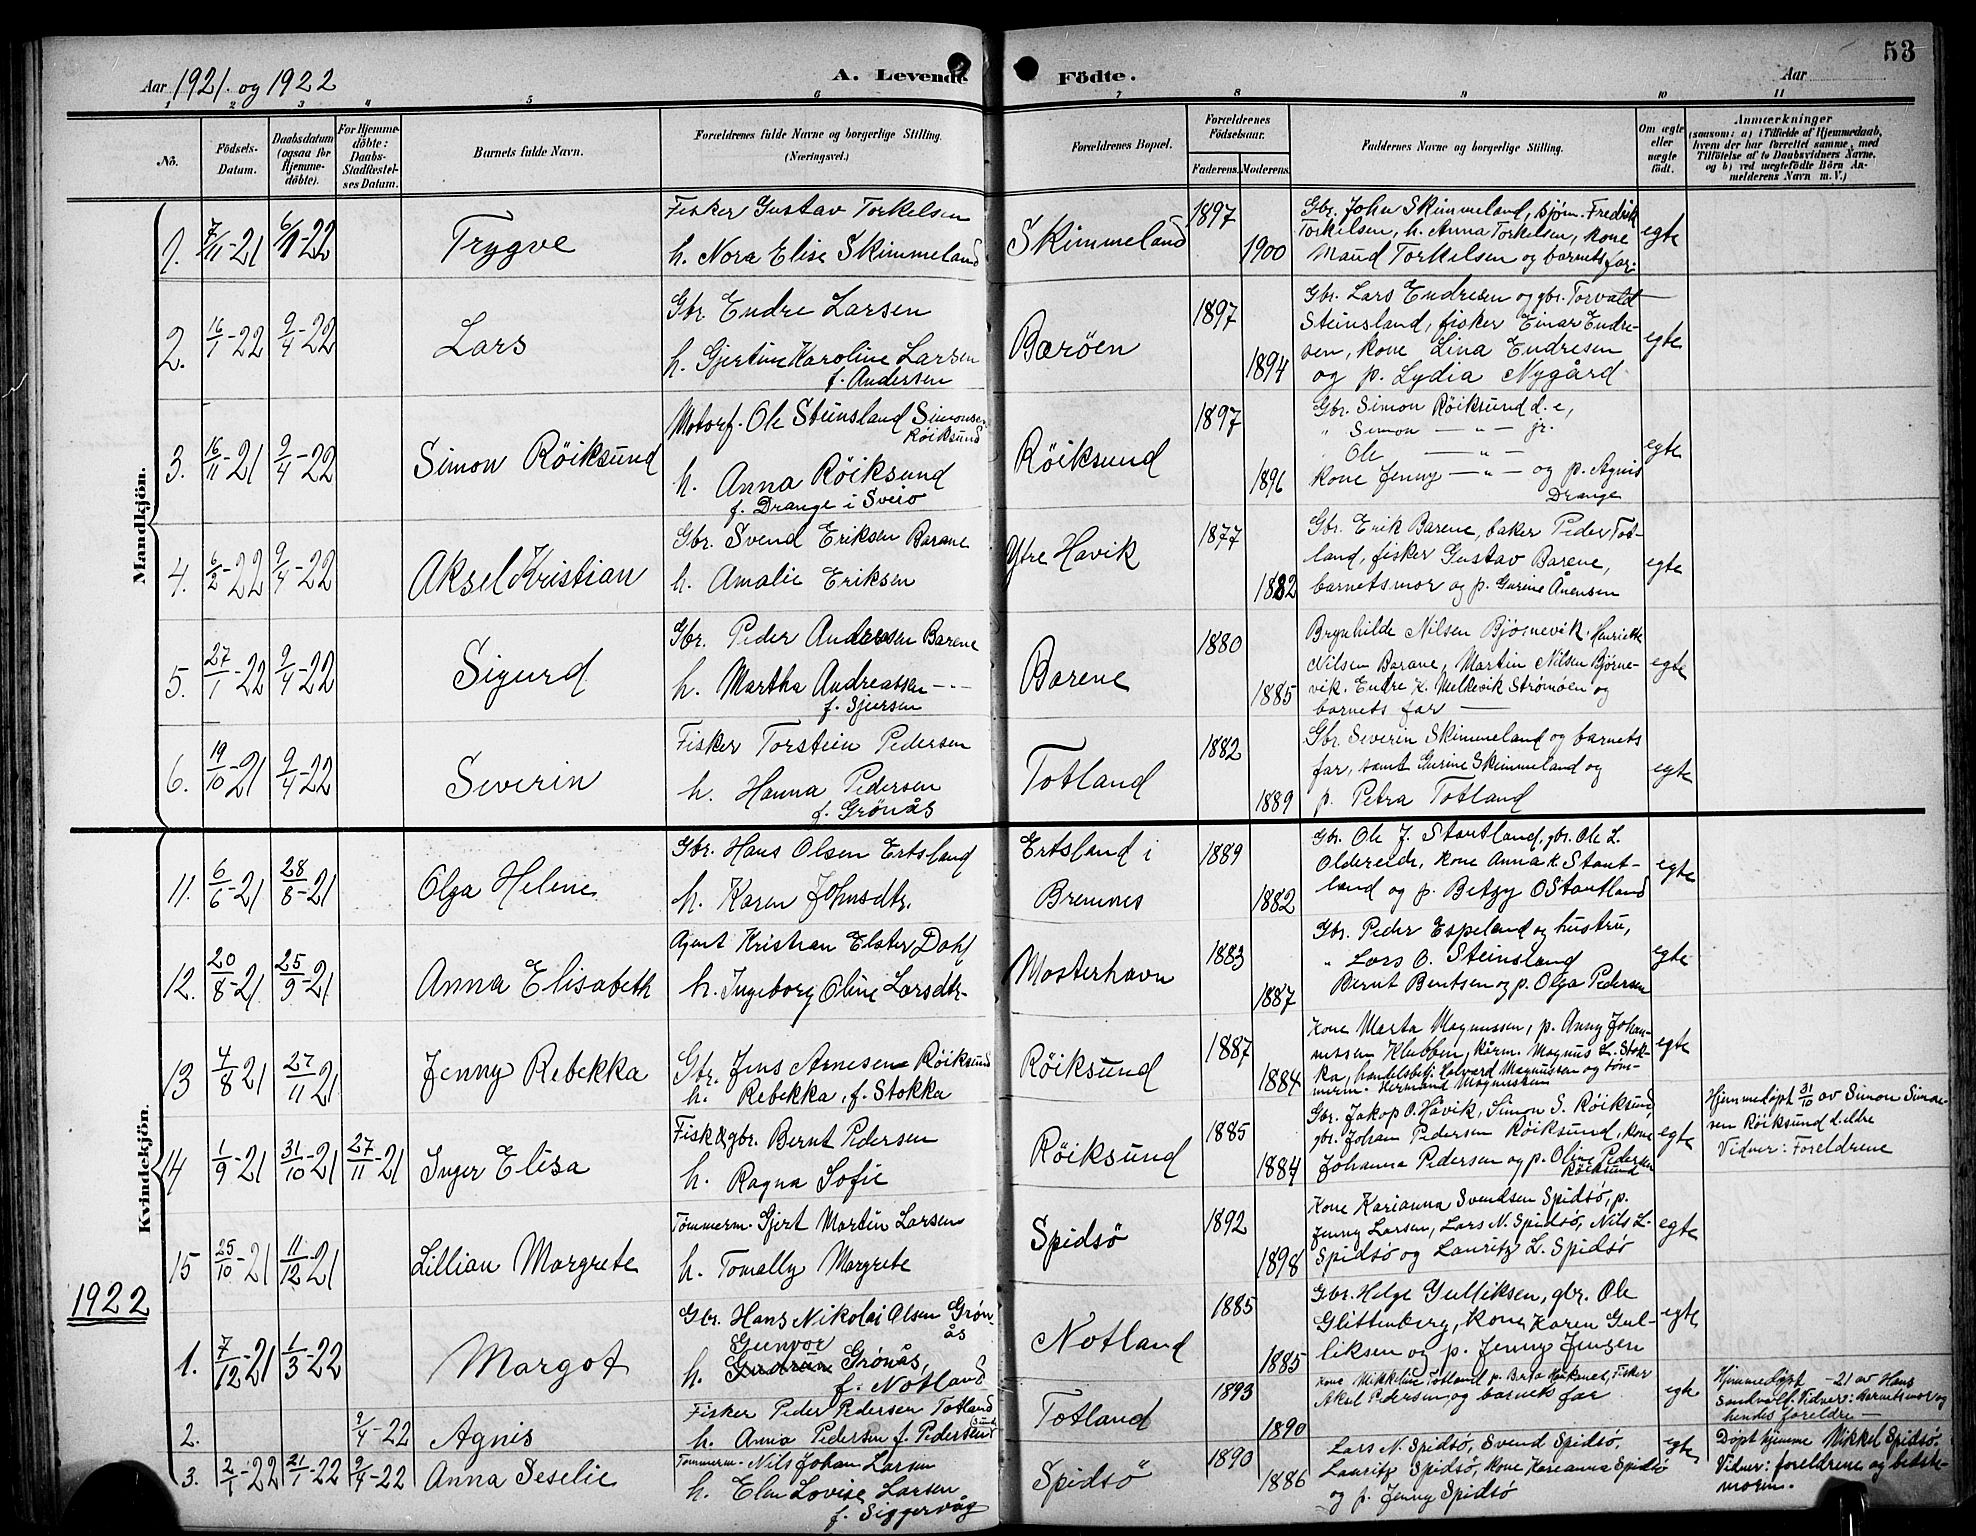 53
Aar 1921. og 1922
A. Levende Födte.
Aar
1 2 3 4 5 6 7 8 9 10 11
No.
Födsels-Datum.
Daabsdatum (ogsaa for Hjemme-döbte).
For Hjemme-döbte: Daabs-Stadfæstel-ses Datum.
Barnets fulde Navn.
Forældrenes fulde Navne og borgerlige Stilling. (Næringsvei.)
Forældrenes Bopæl.
Forældrenes Födselsaar.
Faderens. Moderens.
Faddernes Navne og borgerlige Stilling.
Om ægte eller uægte födt.
Anmærkninger
(saasom: a) i Tilfælde af Hjemmedaab,
hvem der har forrettet samme, med
Tilföielse af to Daabsvidners Navne,
og b) ved uægtefödte Börn An-
melderens Navn m. V.)
Mandkjön.
1. 7/11-21 6/1-22 Trygve
Fisker Gustav Torkelsen
h. Nora Elise Skimmeland
Skimmeland 1897 1900
Gbr. John Skimmeland, bjøm. Fredrik
Torkelsen, h. Anna Torkelsen, kone
Maud Torkelsen og barnets far.
egte
2. 16/1-22 9/4-22 Lars
Gbr. Endre Larsen
h. Gjertine Karoline Larsen
f. Andersen
Barøen 1897 1894
Gbr. Lars Endresen og gbr. Torvald
Steinsland, fisker Einar Endre-
sen, kone Lina Endresen
og p. Lydia Nygård
egte
3. 16/11-21 9/4-22 Simon Röiksund
Motorf. Ole Steinsland Simonsen
Röiksund
h. Anna Röiksund
f. Drange i Sveio
Röiksund 1897 1896
Gbr. Simon Röiksund d. e,
" Simon — " — jr.
" Ole — " —
kone Jenny — " — og p. Agnis
Drange
egte
4. 6/2-22 9/4-22 Aksel Kristian
Gbr. Svend Eriksen Barane
h. Amalie Eriksen
Ytre Håvik 1877 1882
Gbr. Erik Barene, baker Peder Tot-
land, fisker Gustav Barene,
barnets mor og p. Gurine Ånensen
egte
5. 27/1-22 9/4-22 Sigurd
Gbr. Peder Andersen Barene
h. Martha Andreassen - - -
f. Sjursen
Barene 1880 1885
Brynhilde Nilsen Bjørnevik. Henriette
Nilsen Barane, Martin Nilsen Bjørne-
vik. Endre K. Melkevik Strømøen og
barnets far —
egte
6. 19/10-21 9/4-22 Severin
Fisker Torstein Pedersen
h. Hanna Pedersen
f. Grönås
Totland 1882 1889
Gbr. Severin Skimmeland og barnets
far, samt Gurine Skimmeland og
p. Petra Totland
egte
Kvindekjön.
11. 6/6-21 28/8-21 Olga Helene
Gbr. Hans Olsen Ertsland
h. Karen Johnsdtr.
Ertsland i
Bremnes
1889 1882
Gbr. Ole J. Stautland, gbr. Ole L.
Oldereide, kone Anna K. Staut-
land og p. Betzy O Stautland
egte
12. 20/8-21 25/9-21 Anna Elisabeth
Agent Kristian Elster Dahl
h. Ingeborg Oline Larsdtr.
Mosterhavn 1883 1887
Gbr. Peder Espeland og hustru,
" Lars O. Steinsland
Bernt Bentsen og p. Olga Pedersen
egte
13 4/8-21 27/11-21 Jenny Rebekka
Gbr. Jens Arnesen Röiksund
h. Rebekka, f. Stokka
Röiksund 1887 1884
Kone Marta Magnussen, p. Anny Johan-
nessen Klubben, kårm. Magnus L. Stok-
ka, handelsbetj. Halvard Magnussen og töm-
merm. Hermand Magnussen
egte
14 1/9-21 31/10-21 27/11-21 Inger Elisa
Fisk & gbr. Bernt Pedersen
h. Ragna Sofie
Röiksund 1885 1884
Gbr. Jakop O. Håvik, Simon S. Röiksund
gbr. Johan Pedersen Röiksund, kone
Johanna Pedersen og p. Oline Pedersen
Röiksund
egte
Hjemmedøpt 31/10 av Simon Simon-
sen Röiksund d. eldre
Vidner: Foreldrene
15 25/10-21 11/12-21 Lillian Margrete
Tömmerm. Gjert Martin Larsen
h. Tomally Margrete
Spidsö 1892 1898
Kone Karianna Svendsen Spidsö, p.
Jenny Larsen, Lars N. Spidsö, Nils L.
Spidsö og Lauritz L. Spidsö
egte
1922
1. 7/12-21 1/3-22 Margot
Gbr. Hans Nikolai Olsen Grön-
ås
Gunvor
h. Gudrun Grönås,
f. Notland
Notland 1885 1885
Gbr. Helge Gulliksen, gbr. Ole
Glittenberg, kone Karen Gul-
liksen og p. Jenny Jensen
egte
2. 9/4-22 Agnis
Fisker Peder Pedersen Totland
h. Anna Pedersen f. Pedersen
Totland 1893 1890
Kone Mikkeline Totland p. Berta Fisker
Aksel Pedersen og barnets far
egte
Hjemmedøpt -21 av Hans
Sandvold. Vidner: barnets mor og
hendes foreldre —
3. 2/1-22 21/1-22 9/4-22 Anna Seselie
Tömmerm. Nils Johan Larsen
h. Elen Lovise Larsen
f. Siggervåg
Spidsö 1890 1886
Lars N. Spidsö, Svend Spidsö,
Lauritz Spidsö, kone Karianna Spidsö
og p. Jenny Spidsö
egte
Døpt hjemme Mikkel Spidsö.
Vidner: foreldrene og bedste-
moren.